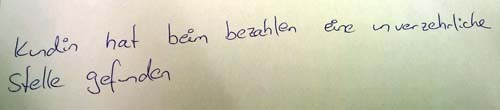 Kundin hat beim bezahlen eine unverzehrliche
Stelle gefunden